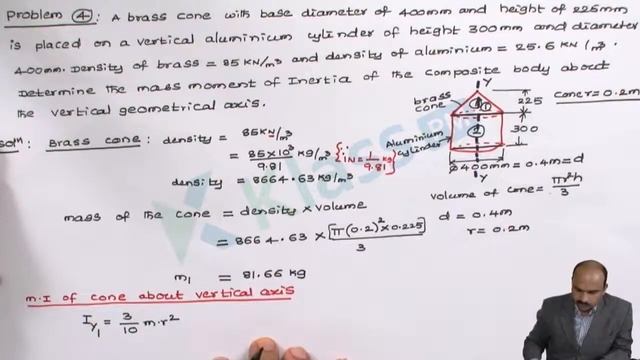 Problem 4 : A brass cone with base diameter of 400mm and height of 225mm
is placed on a vertical aluminium cylinder of height 300mm and diameter
400mm. Density of brass = 85 KN/m³ and density of aluminium = 25.6 KN/m³.
Determine the mass moment of Inertia of the composite body about
the vertical geometrical axis.
Soln: Brass cone: density = 85KN/m³
= 85×10³/9.81 kg/m³ {∵ 1N = 1/9.81 kg}
density = 8664.63 kg/m³
mass of the cone = density × volume
= 8664.63 × [π(0.2)²×0.225]/3
m₁ = 81.66 kg
m.I of cone about vertical axis
I_y₁ = 3/10 m.r²
Y
brass cone
1
225
cone r = 0.2m
Aluminium cylinder
2
300
φ 400mm = 0.4m = d
Y
volume of cone = πr²h/3
d = 0.4m
r = 0.2m